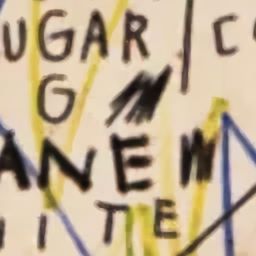 UGAR C
G
ANEW
ITE